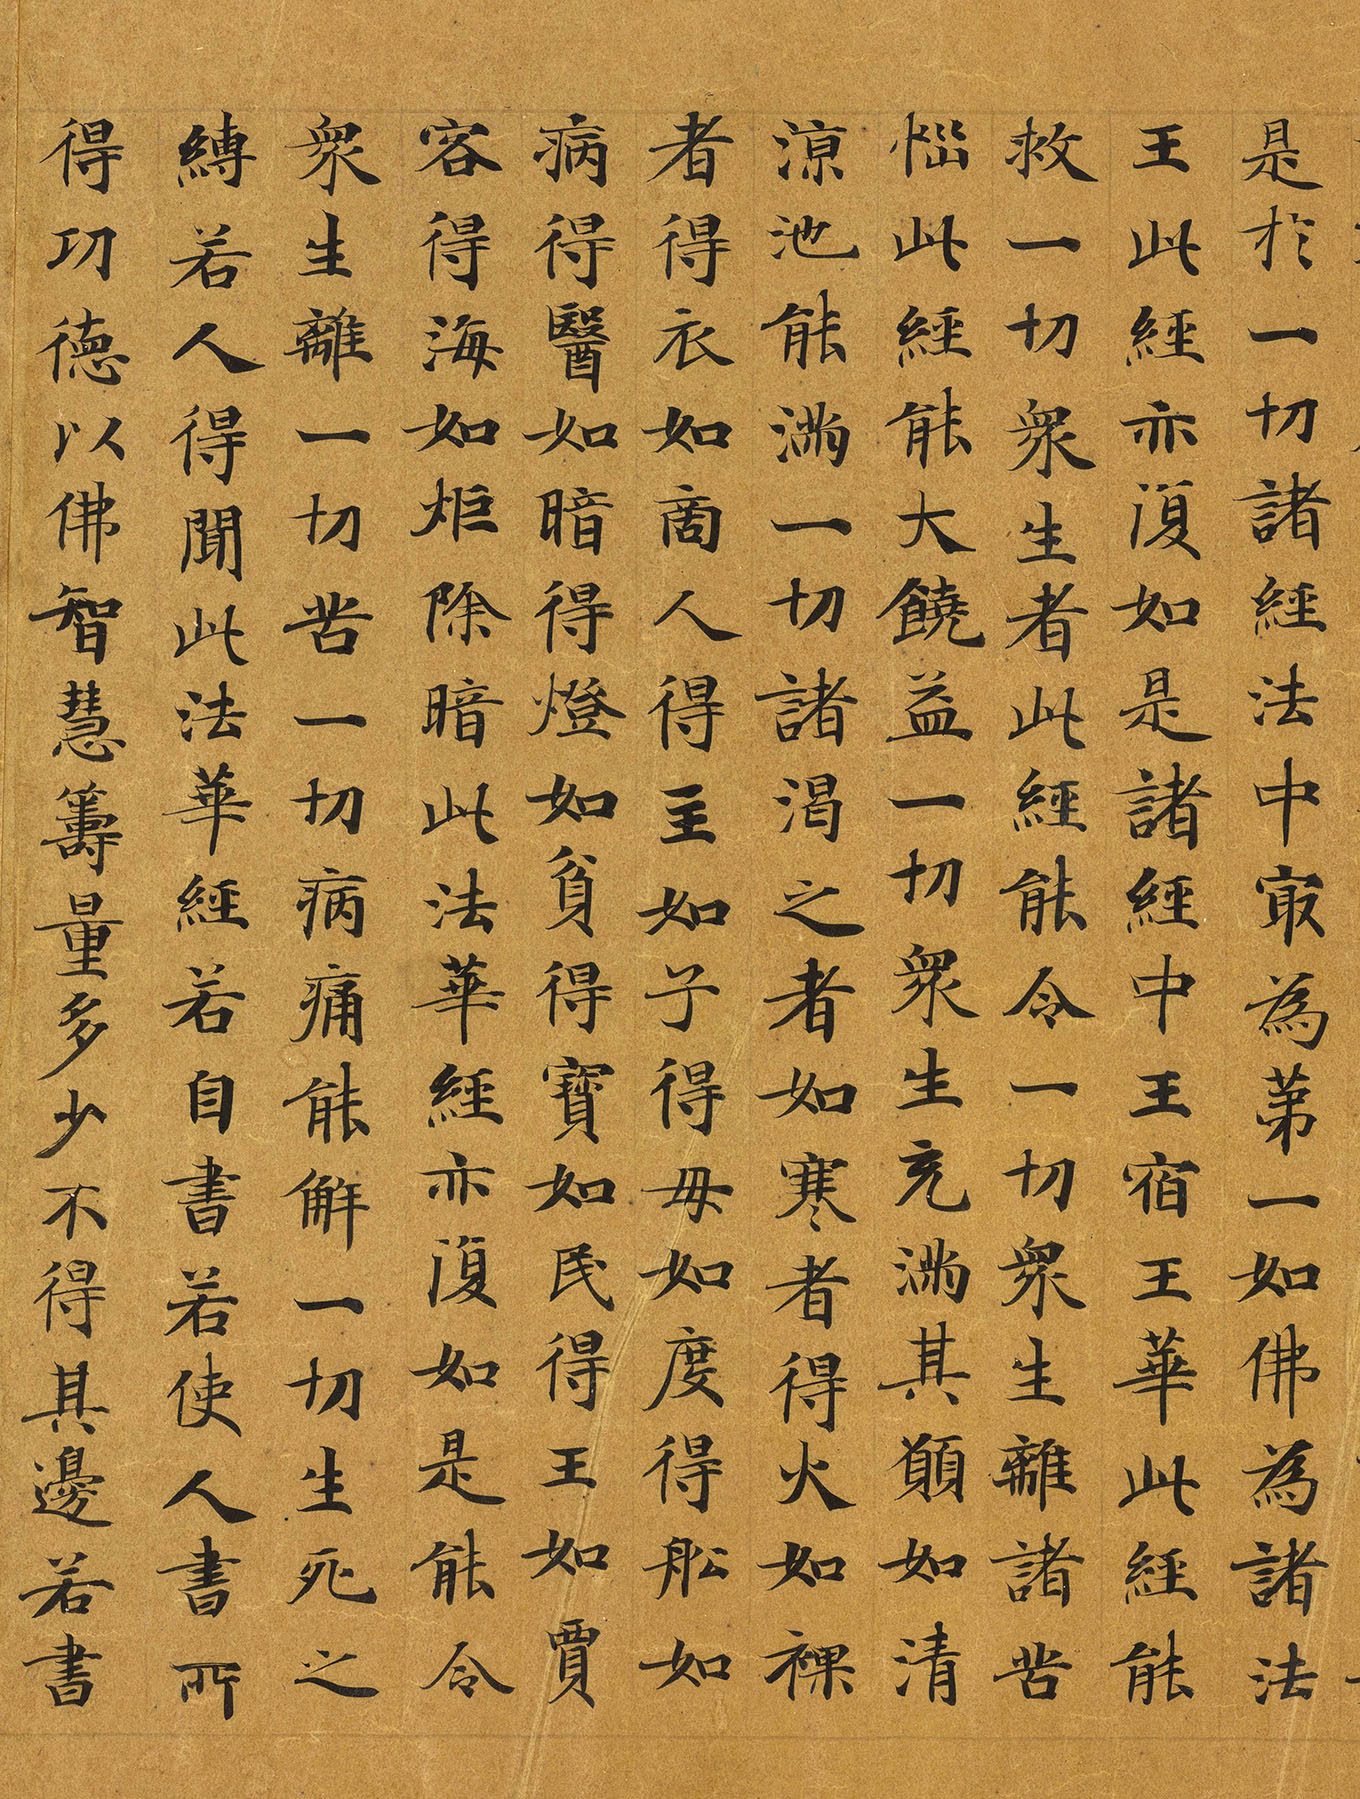 是於一切諸經法中冣為苐一如佛為諸法
王此經亦復如是諸經中王宿王華此經能
救一切衆生者此經能令一切衆生離諸苦
惱此經能大饒益一切衆生充滿其願如清
涼池能滿一切諸渴之者如寒者得火如裸
者得衣如商人得主如子得母如度得舩如
病得醫如暗得燈如貧得寶如民得王如賈
客得海如炬除暗此法華經亦復如是能令
衆生離一切苦一切病痛能解一切生死之
縛若人得聞此法華經若自書若使人書所
得功德以佛智慧籌量多少不得其邊若書